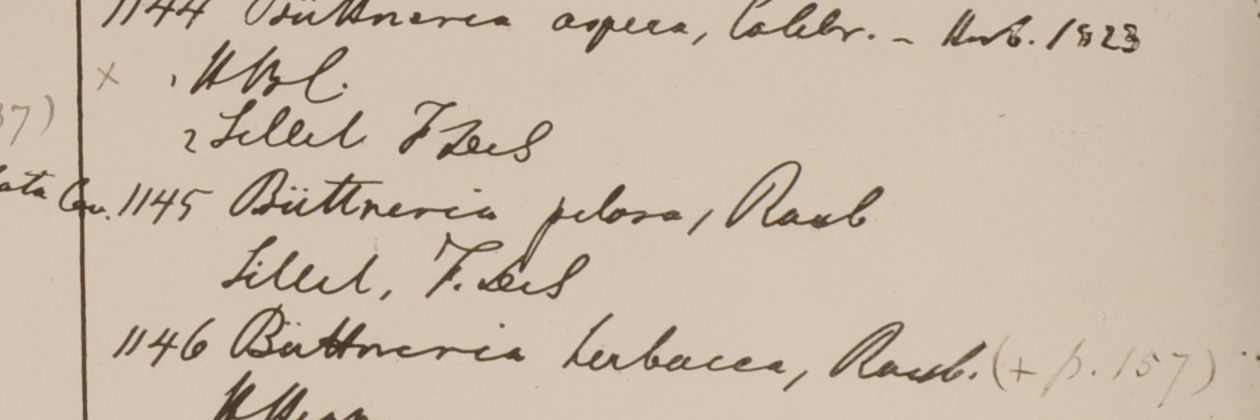 1144 Büttneria aspera, Colebr. - Herb. 1823
x 1 HBC.
37)
2 Sillet F deS
ata Cav. 1145 Büttneria pilosa, Roxb
Sillet, F. deS
1146 Büttneria herbacea, Roxb. (+ p. 157)